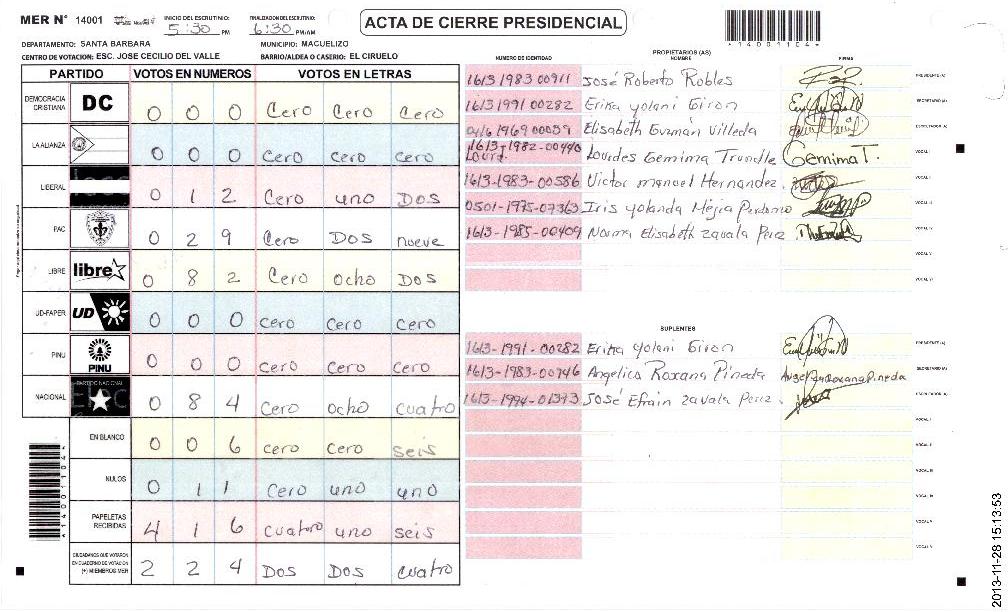 MER N° 14001
INICIO DEL ESCRUTINIO:
5:30 PM
FINALIZACION DEL ESCRUTINIO:
6:30 PM/AM
ACTA DE CIERRE PRESIDENCIAL
*14001104*
DEPARTAMENTO: SANTA BARBARA
MUNICIPIO: MACUELIZO
CENTRO DE VOTACION: ESC. JOSE CECILIO DEL VALLE
BARRIO/ALDEA O CASERIO: EL CIRUELO
PARTIDO VOTOS EN NUMEROS VOTOS EN LETRAS
DEMOCRACIA CRISTIANA DC 0 0 0 Cero Cero Cero
LA ALIANZA 0 0 0 Cero Cero Cero
LIBERAL 0 1 2 Cero uno Dos
PAC 0 2 9 Cero Dos nueve
LIBRE libre 0 8 2 Cero ocho Dos
UD-FAPER UD 0 0 0 Cero Cero Cero
PINU PINU 0 0 0 Cero Cero Cero
NACIONAL PARTIDO NACIONAL 0 8 4 Cero ocho cuatro
EN BLANCO 0 0 6 cero cero seis
NULOS 0 1 1 Cero uno uno
PAPELETAS RECIBIDAS 4 1 6 cuatro uno seis
CIUDADANOS QUE VOTARON EN CUADERNO DE VOTACION (+) MIEMBROS MER 2 2 4 Dos Dos cuatro
*14001104*
PROPIETARIOS (AS)
NUMERO DE IDENTIDAD NOMBRE FIRMA
1613 1983 00911 José Roberto Robles PRESIDENTE (A)
1613 1991 00282 Erika yolani Giron SECRETARIO (A)
1969 00039 Elisabeth Guzmán Villeda ESCRUTADOR (A)
1613-1982-00440 Lourdes Gemima Trundle Gemima T. VOCAL I
Lourd.
1613-1983-00586 Victor manuel Hernandez. VOCAL II
0501-1975-07363 Iris yolanda Mejia Perdomo VOCAL III
1613-1985-00409 Norma Elisabeth zavala Perez VOCAL IV
VOCAL V
VOCAL VI
SUPLENTES
1613-1991-00282 Erika yolani Giron PRESIDENTE (A)
1613-1983-00746 Angelica Roxana Pineda SECRETARIO (A)
1613-1994-01343 José Efrain zavala Perez. ESCRUTADOR (A)
VOCAL I
VOCAL II
VOCAL III
VOCAL IV
VOCAL V
VOCAL VI
2013-11-28 15:13:53